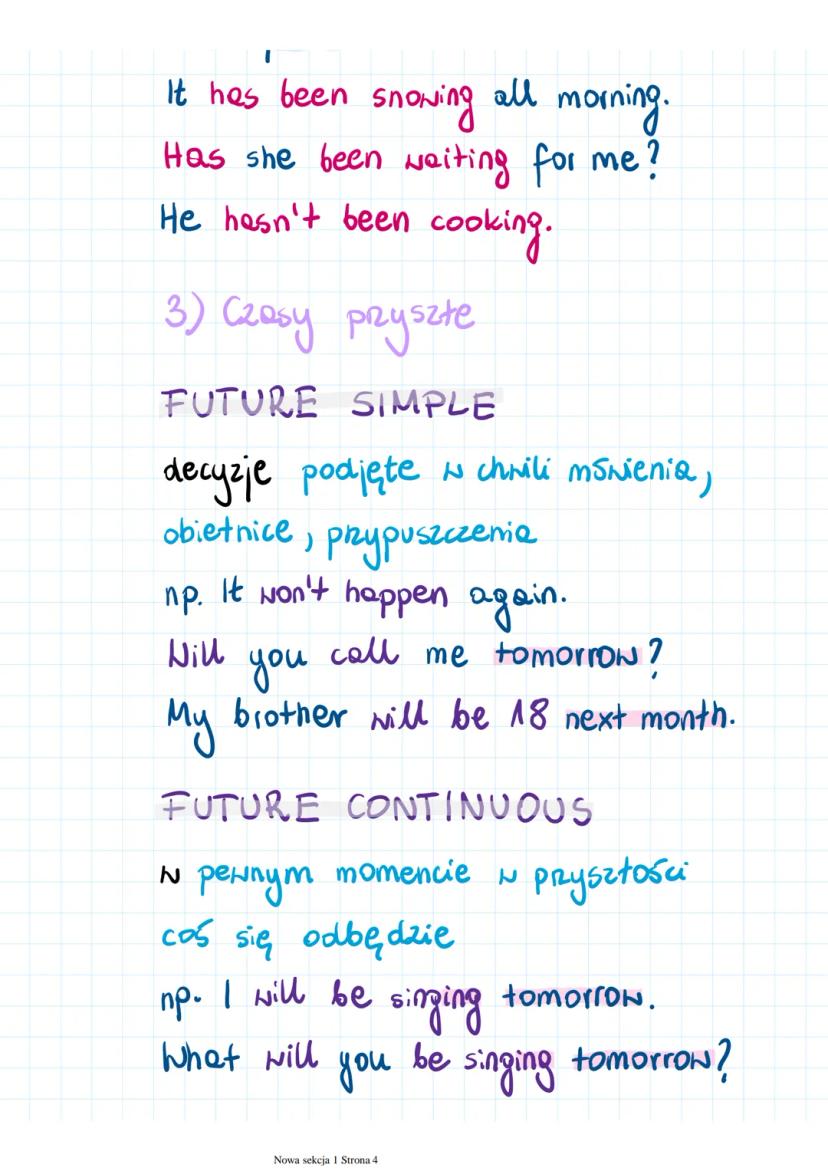 It has been snowing all morning.
Has she been waiting for me?
He hasn't been cooking.
3) Czasy przyszłe
FUTURE SIMPLE
decyzje podjęte w chwili mówienia,
obietnice, przypuszczenia
np. It won't happen again.
Will you call me tomorrow?
My brother will be 18 next month.
FUTURE CONTINUOUS
w pewnym momencie w przyszłości
coś się odbędzie
np. I will be singing tomorrow.
What will you be singing tomorrow?
Nowa sekcja 1 Strona 4